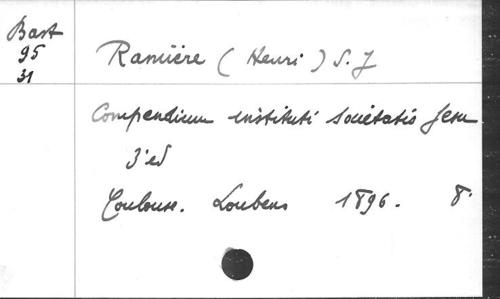 Bast
95
31
Ramière (Henri) S. J
Compendium instituti Societatis Jesu
3'ed
Toulouse. Loubens 1896. 8°